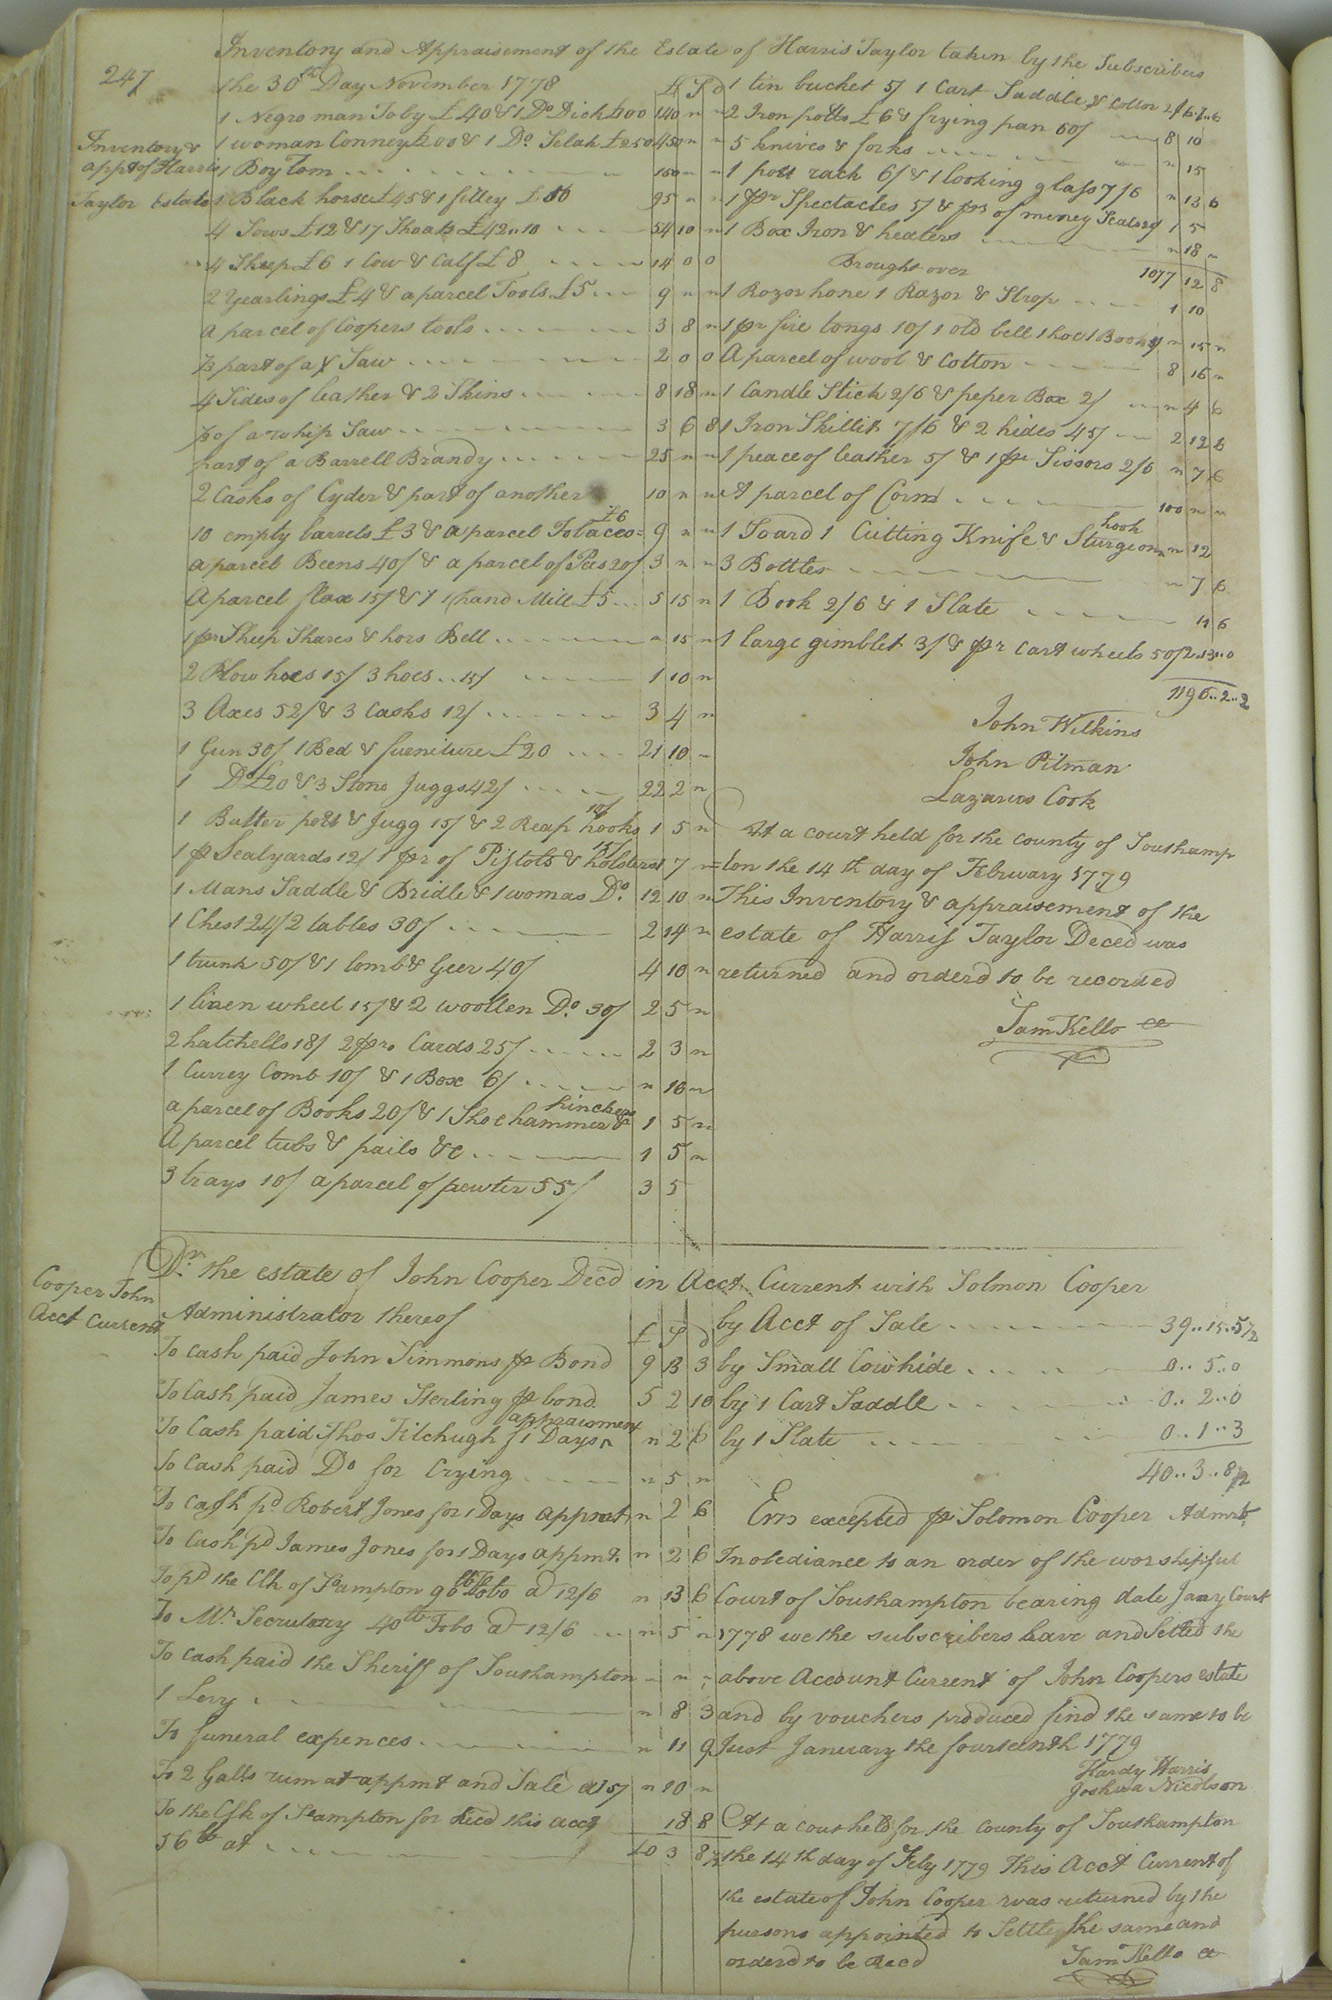 247
Inventory and Appraisement of the Estate of Harris Taylor taken by the Subscribers
the 30th Day November 1778
Inventory &
appt of Harris
Taylor Estate
£ S d
1 Negro man Toby £40 & 1 Do Dick £100 140 " "
1 woman Conney £200 & 1 Do Selah £250 450 " "
1 Boy Tom 100 " "
1 Black horse £45 & 1 filley £50 95 " "
4 Sows £12 & 17 Shoats £42..10 54 10 "
4 Sheep £6 1 Cow & Calf £8 14 0 0
2 Yearlings £4 & a parcel Tools £5 9 " "
a parcel of Coopers tools 3 8 "
part of a X Saw 2 0 0
4 Sides of leather & 2 Skins 8 18 "
of a whip Saw 3 6 8
part of a Barrell Brandy 25 " "
2 Casks of Cyder & part of another 10 " "
10 empty barrels £3 & a parcel Tobacco £6 9 " "
a parcel Beens 40/ & a parcel of Peas 20/ 3 " "
A parcel flax 15/ & 1 hand Mill £5 5 15 "
1 pr Sheep Shares & hors Bell " 15 "
2 Plow hoes 15/ 3 hoes 15/ 1 10 "
3 Axes 52/ & 3 Casks 12/ 3 4 "
1 Gun 30/ 1 Bed & furniture £20 21 10 "
1 Do £20 & 3 Stone Juggs 42/ 22 2 "
1 Butter pott & Jugg 15/ & 2 Reap hooks 10/ 1 5 "
1 pr Sealyards 12/ 1 pr of Pistols & holsters 15/ 1 7 "
1 Mans Saddle & Bridle & 1 womas Do 12 10 "
1 Chest 24/ 2 tables 30/ 2 14 "
1 trunk 50/ & 1 lomb & Geer 40/ 4 10 "
1 linen wheel 15/ & 2 woollen Do. 30/ 2 5 "
2 hatchells 18/ 2 pr. Cards 25/ 2 3 "
1 Currey Comb 10/ & 1 Box 6/ " 16 "
a parcel of Books 20/ & 1 Shoe hammer & Pinchers 1 5 "
A parcel tubs & pails &c 1 5 "
3 trays 10/ a parcel of pewter 55/ 3 5
1 tin bucket 5/ 1 Cart Saddle & Collor
2 Iron potts £6 & frying pan 50/ 8 10
5 knives & forks " 15
1 pott rack 6/ & 1 looking glass 7/6 " 13 6
1 pr Spectacles 5/ & pr of money Scales 1 5
1 Box Iron & heaters " 18 "
Brought over 1077 12 8
1 Rozor hone 1 Razor & Strop 1 10
1 pr fire tongs 10/ 1 old bell 1 hoe 1 Book " 15 "
A parcel of wool & Cotton 8 16 "
1 Candle Stick 2/6 & peper Box 2/ " 4 6
1 Iron Skillit 7/6 & 2 hides 45/ 2 12 6
1 peace of leather 5/ & 1 pr Sissors 2/6 " 7 6
A parcel of Corn 100 " "
1 Soard 1 Cutting Knife & Sturgeon hook " 12
3 Bottles " 7 6
1 Book 2/6 & 1 Slate 4 6
1 large gimblet 3/ & pr cart wheels 50/ 2..13..0
1196..2..2
John Wilkins
John Pitman
Lazarus Cook
At a court held for the county of Southamp
ton the 14th day of February 1779
This Inventory & appraisement of the
estate of Harris Taylor Deced was
returned and orderd to be recorded
Sam Kello cc
Cooper John
Acct Current
Dr. the estate of John Cooper Decd in Acct Current with Solmon Cooper
Administrator thereof
£ S d
To cash paid John Simmons pr Bond 9 13 3
To Cash paid James Sterling pr bond 5 2 10
To Cash paid Thos Fitchugh f 1 Days appraisment " 2 6
To Cash paid Do for Crying " 5 "
To Cash pd Robert Jones for 1 Days Appmt " 2 6
To Cash pd James Jones for 1 Days appmt. " 2 6
To pd the Clk of Sampton 96 lb Tobo a 12/6 " 13 6
To Mr Secrutary 40lb Tobo at 12/6 " 5 "
To Cash paid the Sheriff of Southampton
1 Levy " 8 3
To funeral expences " 11 9
To 2 Galls rum at appmt and Sale at 5/ " 10 "
To the Clk of Sampton for Recd this acct
56lb at 18 8
40 3 8 1/2
by Acct of Sale 39..15..5 1/2
by Small Cowhide 0..5..0
by 1 Cart Saddle 0..2..0
by 1 Slate 0..1..3
40..3..8 1/2
Errs excepted pr Solomon Cooper Admr
In obediance to an order of the worshipful
Court of Southampton bearing date Jany Court
1778 we the subscribers have and Setled the
above Account Current of John Coopers estate
and by vouchers produced find the same to be
Just January the fourteenth 1779
Hardy Harris
Joshua Nicolson
At a court held for the county of Southampton
the 14th day of Feby 1779 This Acct Current of
the estate of John Cooper was returned by the
persons appointed to Settle the same and
orderd to be Recd
Sam Kello cc